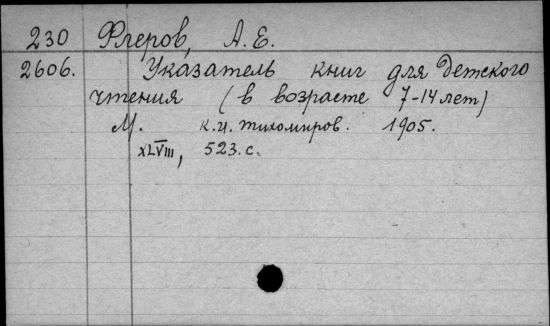 230 Флеров, А. Е.
2606. Указатель книг для детского
чтения (в возрасте 7-14 лет)
М. К.И. Тихомиров. 1905.
XLVIII, 523.с.